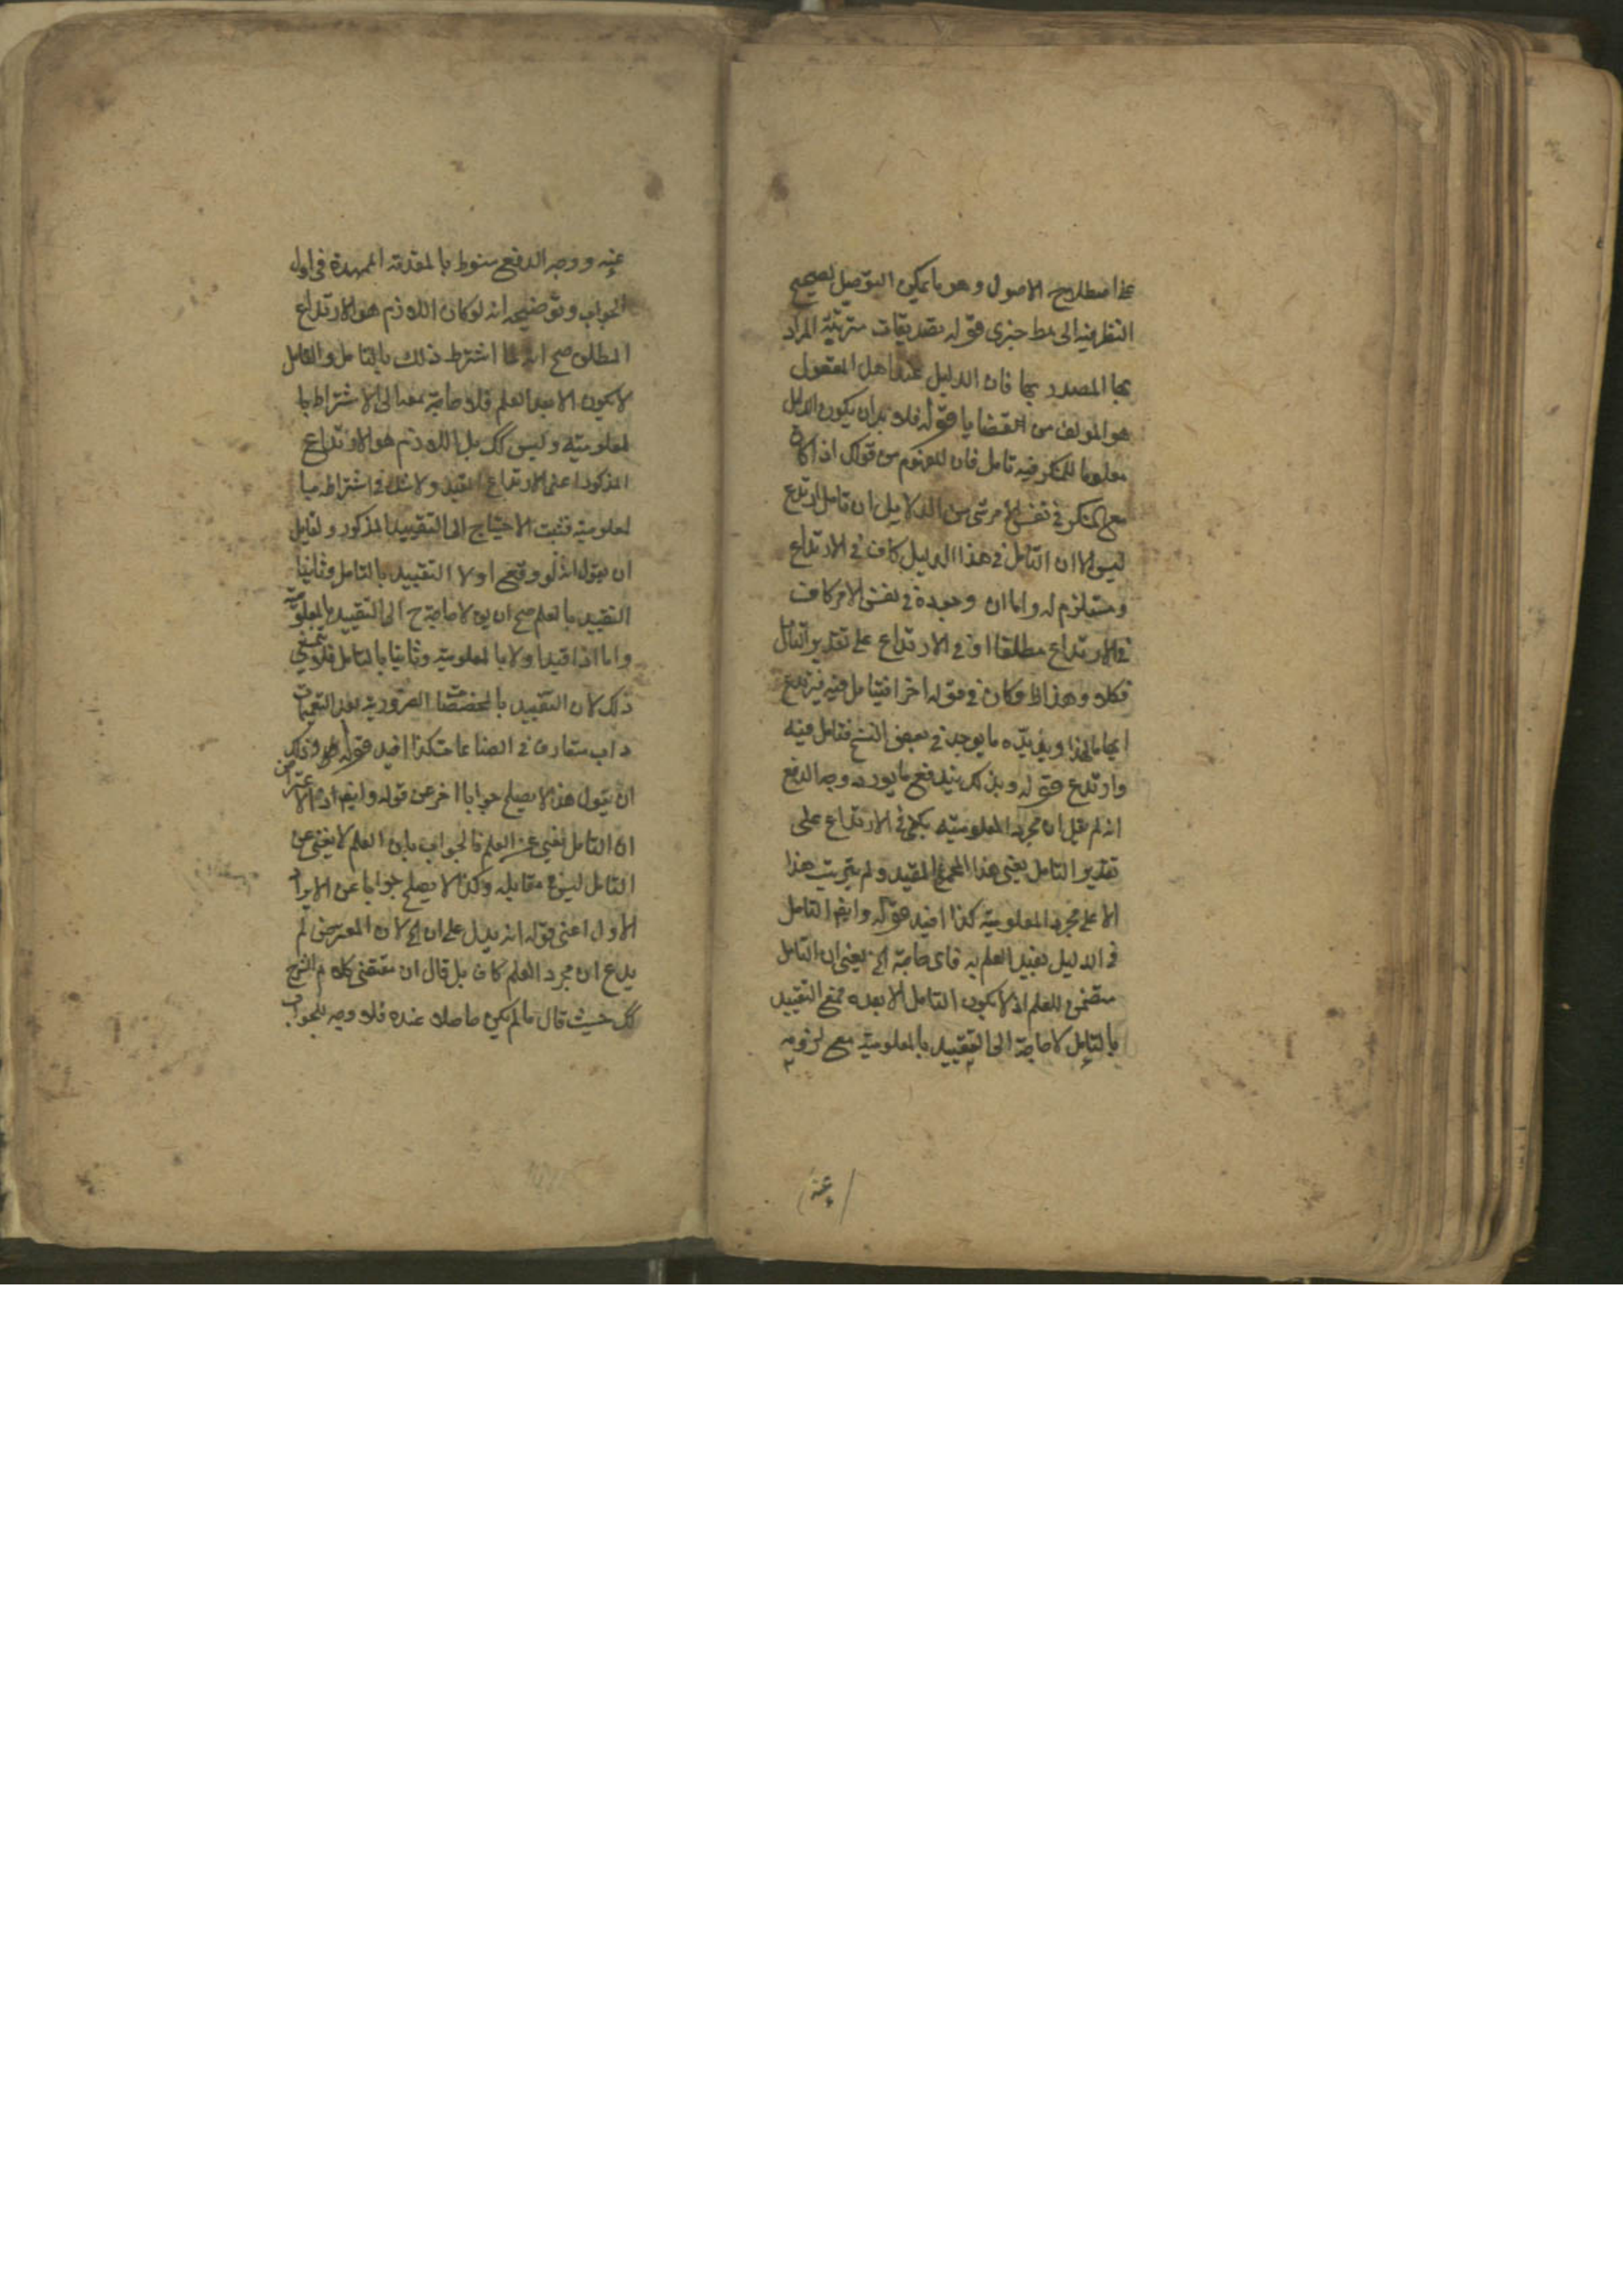 على اصطلاح الاصول وهو ما يمكن التوصل بصحيح
النظر فيه الى مط خبرى قوله تصديقات مترتبة المراد
بها المصدر بها فان الدليل عند اهل المعقول
هو المولف من القضايا قوله فلا بد ان يكون الدليل
معلوما للمنكر فيه تامل فان المفهوم من قولك اذا كان
مع المنكر فى نفس الامر شى من الدلايل ان تامل ارتدع
ليس الا ان التامل فى هذا الدليل كاف فى الارتداع
ومستلزم له واما ان وجوده فى نفس الامر كاف
فى الارتداع مطلقا او فى الارتداع على تقدير التامل
فكلا وهذا ظ وكان فى قوله اخرا فيتامل فيه فيرتدع
ايماء لهذا ويؤيده ما يوجد فى بعض النسخ فتامل فيه
وارتدع قوله وبذلك يندفع ما يورد وجه الدفع
انه لم يقل ان مجرد المعلومية يكفى فى الارتداع على
تقدير التامل يعنى هذا المجموع المقيد ولم يترتب هذا
الا على مجرد المعلومية كذا افيد قوله وايض التامل
فى الدليل بعد العلم به فاى حاجة الخ يعنى ان التامل
متضمن للعلم اذ لا يكون التامل الا بعده فمع التقييد
بالتامل لا حاجة الى التقييد بالمعلومية مع لزومه
عنه
عنه ووجه الدفع منوط بالمقدمة الممهدة فى اول
الجواب وتوضيحه انه لو كان اللازم هو الارتداع
المطلق صح انه لما اشترط ذلك بالتامل والتامل
لا يكون الا بعد العلم فلا حاجة بعد الى الاشتراط با
لمعلومية وليس كك بل اللازم هو الارتداع
المذكور اعنى الارتداع المقيد ولا شك فى اشتراطه با
لمعلومية فثبت الاحتياج الى التقييد المذكور ولقايل
ان يقول انه لو وقع اولا التقييد بالتامل وثانيا
التقييد بالعلم صح ان يق لا حاجة ح الى التقييد بالمعلومية
واما اذا قيد اولا بالمعلومية وثانيا بالتامل فلا يتمشى
ذلك لان التقييد بالمخصصات الضرورية بعد التعميمات
داب متعارف فى الصناعات كذا افيد قوله
ان يقول هذا لا يصلح جوابا اخر عن قوله وايض اذ الاعتراض
ان التامل يغنى عن العلم فالجواب بان العلم لا يغنى عن
التامل ليس فى مقابله وكذا لا يصلح جوابا عن الايراد
الاول اعنى قوله انه يدل على ان الخ لان المعترض لم
يدع ان مجرد العلم كاف بل قال ان مقتضى كلام الشرح
كك حيث قال ما لم يكن حاصلا عنده فلا وجه للجواب